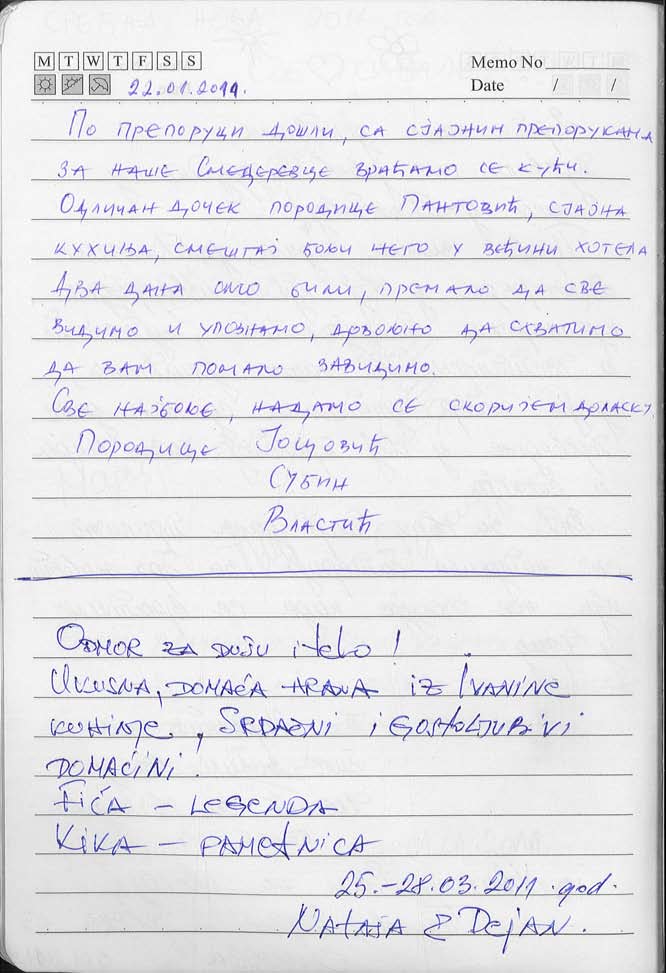 M T W T F S S
Memo No
Date / /
22.01.2011.
По препоруци дошли, са сјајним препорукама
за наше Смедеревце враћамо се кући.
Одличан дочек породице Пантовић, сјајна
кухиња, смештај бољи него у већини хотела
Два дана смо били, премало да све
видимо и упознамо, довољно да схватимо
да вам помало завидимо.
Све најбоље, надамо се скоријем доласку
Породице
Субин
Властић
Odmor za dušu i telo!
Ukusna, domaća hrana iz Ivanine
kuhinje, Srdačni i gostoljubivi
domaćini.
Fića – legenda
Kika – pametnica
25.-28.03.2011. god.
Nataša & Dejan.